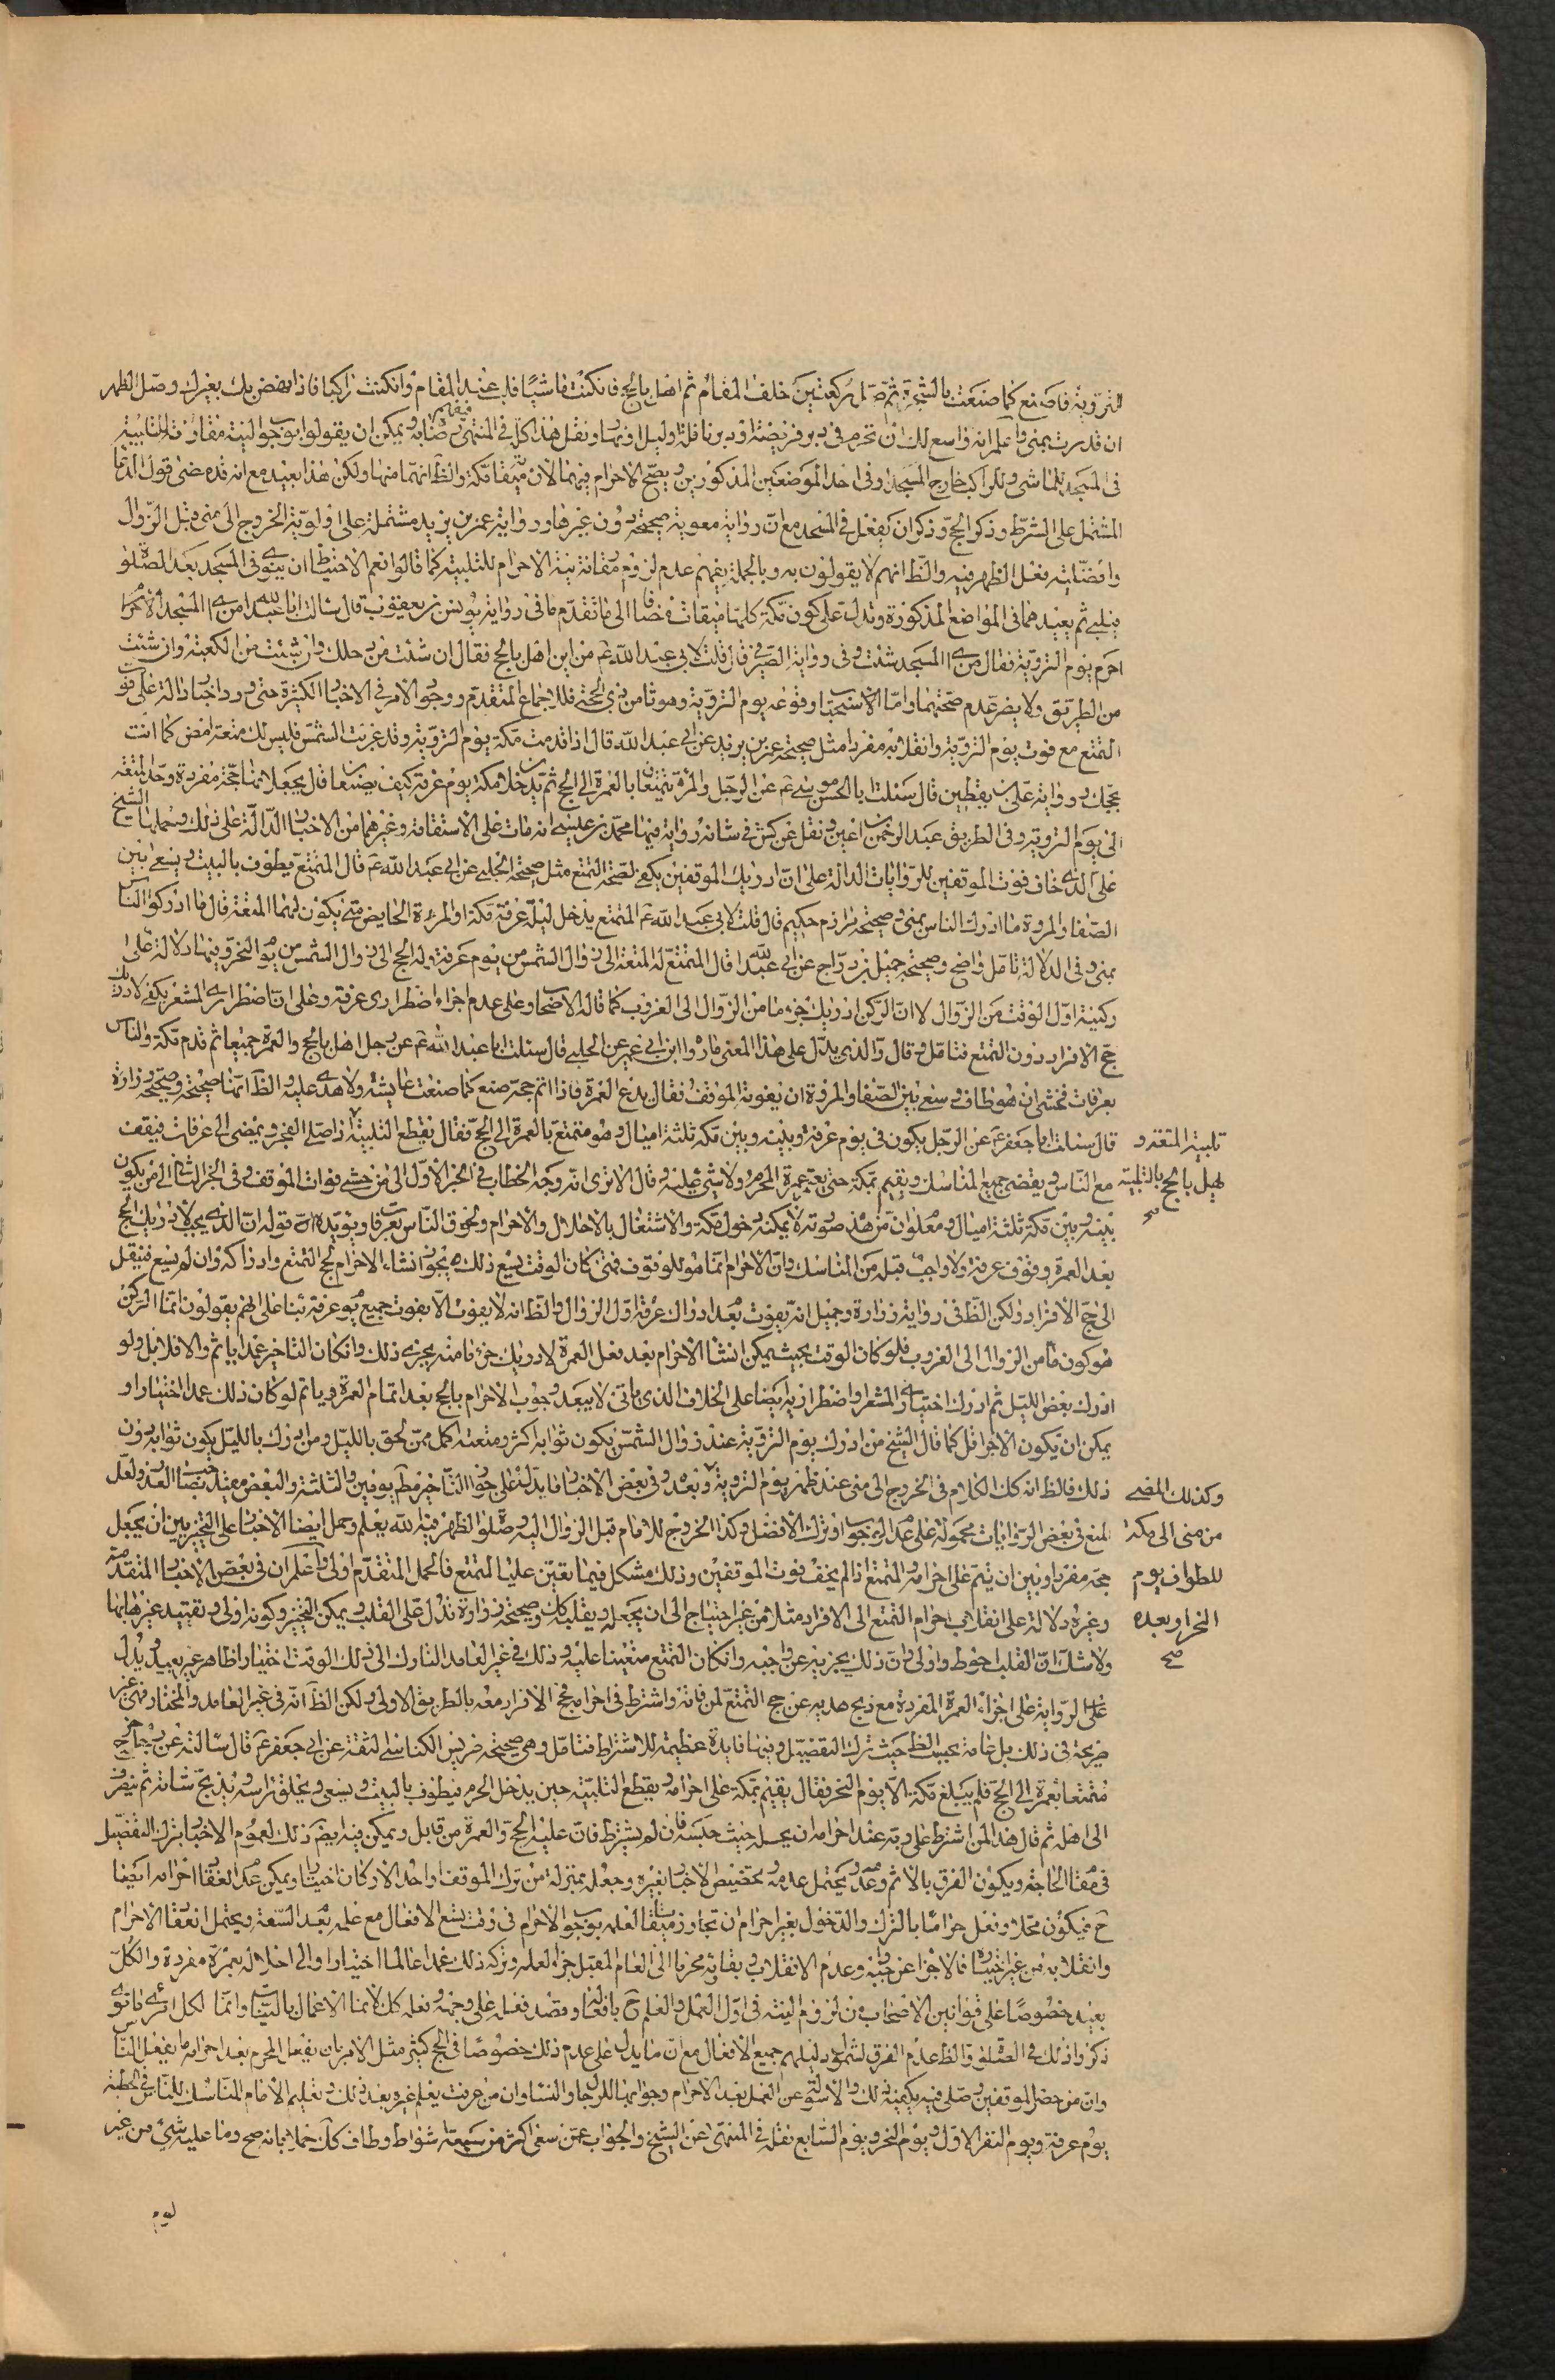 التروية فاصنع كما صنعت بالشجرة ثم صل ركعتين خلف المقام ثم اهل بالحج فان كنت ماشيا فلب عند المقام وان كنت راكبا فاذا نهض بك بعيرك وصل الظهر
ان قدرت بمنى واعلم انه واسع لك ان تحرم فى دبر فريضة او دبر نافلة وليل او نهار ونقل هذا كله فى المنتهى ويمكن ان يقولوا بوجوب النية مقارنة للتلبية
فى المسجد للماشى وللراكب خارج المسجد وفى احد الموضعين المذكورين ويصح الاحرام فيهما لان ميقاته مكة والظ انهما منها ولكن هذا بعيد مع انه قد مضى قول الدعا
المشتمل على الشرط وذكر الحج وذكر ان يفعل فى المسجد مع ان رواية معوية صحيحة دون غيرها ورواية عمر بن يزيد مشتملة على اولوية الخروج الى منى قبل الزوال
وافضلية فعل الظهر فيه والظ انهم لا يقولون به وبالجملة يفهم عدم لزوم مقارنة نية الاحرام للتلبية كما قالوا نعم الاحتياط ان ينوى فى المسجد بعد الصلوة
فيلبى ثم يعيدهما فى المواضع المذكورة وتدل على كون مكة كلها ميقات مضافا الى ما تقدم ما فى رواية يونس بن يعقوب قال سالت ابا عبد الله من اى المسجد
احرم يوم التروية فقال من اى المسجد شئت وفى رواية الصيرفى قال قلت لابى عبد الله ع من اين اهل بالحج فقال ان شئت من رحلك وان شئت من الكعبة وان شئت
من الطريق ولا يضر عدم صحتهما واما الاستحباب وقوعه يوم التروية وهو ثامن ذى الحجة فللاجماع المتقدم ووجود الامر فى الاخبار الكثيرة حتى ورد اخبار دالة على فوت
التمتع مع فوت يوم التروية وانقلابه مفردا مثل صحيحة عمر بن يزيد عن ابى عبد الله قال اذا قدمت مكة يوم التروية وقد غربت الشمس فليس لك متعة امض كما انت
بحجك ورواية على بن يقطين قال سئلت ابا الحسن موسى ع عن الرجل والمرءة يتمتعان بالعمرة الى الحج ثم يدخلان مكة يوم عرفة كيف يصنعان قال يجعلانها حجة مفردة وحد المتعة
الى يوم التروية وفى الطريق عبد الرحمن بن اعين ونقل عن كش فى شانه رواية فيها محمد بن عيسى انه مات على الاستقامة وغيرهما من الاخبار الدالة على ذلك وحملها الشيخ
على الذى خاف فوت الموقفين للروايات الدالة على ان ادراك الموقفين يكفى لصحة التمتع مثل صحيحة الحلبى عن ابى عبد الله ع قال المتمتع يطوف بالبيت ويسعى بين
الصفا والمروة ما ادرك الناس بمنى وصحيحة مرازم بن حكيم قال قلت لابى عبد الله ع المتمتع يدخل ليلة عرفة مكة او المرءة الحايض متى يكون لهما المتعة قال ما ادركوا الناس
بمنى وفى الدلالة تامل واضح وصحيحة جميل بن دراج عن ابى عبد الله قال المتمتع له المتعة الى زوال الشمس من يوم عرفة وله الحج الى زوال الشمس من يوم النحر وفيها دلالة على
ركنية اول الوقت من الزوال لا ان الركن ادراك جزء ما من الزوال الى الغروب كما قاله الاصحاب وعلى عدم اجزاء اضطرارى عرفة وعلى ان اضطرارى المشعر يكفى لادراك
حج الافراد دون التمتع فتامل قال والذى يدل على هذا المعنى ما رواه ابن ابى عمير عن الحلبى قال سئلت ابا عبد الله ع عن رجل اهل بالحج والعمرة جميعا ثم قدم مكة والناس
بعرفات فخشى ان هو طاف وسعى بين الصفا والمروة ان يفوته الموقف فقال يدع العمرة فاذا اتم حجه صنع كما صنعت عايشة ولا هدى عليه والظ انها صحيحة وصحيحة زرارة
قال سئلت ابا جعفر ع عن الرجل يكون فى يوم عرفة وبينه وبين مكة ثلثة اميال وهو متمتع بالعمرة الى الحج فقال يقطع التلبية اذا صلى الفجر ويمضى الى عرفات فيقف
مع الناس ويقضى جميع المناسك ويقيم بمكة حتى يعتمر عمرة المحرم ولا شئ عليه وقال الا ترى انه وجه الخطاب فى الخبر الاول الى من خشى فوات الموقف وفى الخبر الثانى الى من يكون
بينه وبين مكة ثلثة اميال ومعلوم ان من هذه صورته لا يمكنه دخول مكة والاشتغال بالاحلال والاحرام ولحوق الناس بعرفات ويؤيده ان قوله ان الذى يجب لادراك الحج
بعد العمرة وقوف عرفة ولا واجب قبله من المناسك وان الاحرام انما هو للوقوف فمتى كان الوقت يسع ذلك يجوز انشاء الاحرام لحج التمتع وادراكه وان لم يسع فينقل
الى حج الافراد ولكن الظ فى رواية زرارة وجميل انه يفوت بعد ادراك عرفة اول الزوال والظ انه لا يفوت الا بفوت جميع يوم عرفة بناء على انهم يقولون انما الركن
هو كون ما من الزوال الى الغروب فلو كان الوقت بحيث يمكن انشاء الاحرام بعد فعل العمرة لادراك جزء ما منه يجزى ذلك وان كان التاخير عمدا ياثم والا فلا بل ولو
ادرك بعض الليل ثم ادرك اختيارى المشعر او اضطراريه ايضا على الخلاف الذى ياتى لا يبعد وجوب الاحرام بالحج بعد اتمام العمرة وياثم لو كان ذلك عمدا اختيارا و
يمكن ان يكون الاجر اقل كما قال الشيخ من ادرك يوم التروية عند زوال الشمس يكون ثوابه اكثر ومتعته اكمل ممن لحق بالليل ومن ادرك بالليل يكون ثوابه دون
ذلك فالظ انه كك الكلام فى الخروج الى منى عند ظهر يوم التروية وبعده وفى بعض الاخبار ما يدل على جواز التاخير مط يومين والثلثة والبعض مقيد العذر ولعل
المنع فى بعض الروايات محمولة على عدم الوجوب او ترك الافضل وكذا الخروج للامام قبل الزوال اليه وصلوة الظهر فيه الله يعلم وحمل ايضا الاخبار على التخيير بين ان يجعل
حجه مفردا وبين ان يتم على احرامه للتمتع اذا لم يخف فوت الموقفين وذلك مشكل فيما تعين عليه التمتع فالحمل المتقدم اولى واعلم ان فى بعض الاخبار المتقدمة
وغيره دلالة على انقلاب احرام التمتع الى الافراد مثلا من غير احتياج الى ان يجعل ويقلب وصحيحة زرارة تدل على القلب ويمكن التخيير وكونه اولى وتقييد غيرها بها
ولا شك ان القلب احوط واولى وان ذلك يجزيه عن واجبه وان كان التمتع متعينا عليه وذلك فى غير العامد التارك الى ذلك الوقت اختيارا ظاهر غير بعيد ويدل
على الرواية على اجزاء العمرة المفردة مع ذبح هديه عن حج التمتع لمن فاته واشترط فى احرامه فحج الافراد معه بالطريق الاولى ولكن الظ انه فى غير العامد والمختار وهى غير
صريحة فى ذلك بل عامة بحسب الظ حيث ترك التفصيل وفيها فايدة عظيمة للاشتراط فتامل وهى صحيحة ضريس الكناسى الثقة عن ابى جعفر ع قال سالته عن رجل خرج
متمتعا بعمرة الى الحج فلم يبلغ مكة الا يوم النحر فقال يقيم بمكة على احرامه ويقطع التلبية حين يدخل الحرم فيطوف بالبيت ويسعى ويحلق راسه ويذبح شاته ثم ينصرف
الى اهله ثم قال هذا لمن اشترط على ربه عند احرامه ان يحله حيث حبسه فان لم يشترط فان عليه الحج والعمرة من قابل ويمكن فيه ايض ذلك لعموم الاخبار بترك التفصيل
فى مقام الحاجة ويكون الفرق بالاثم وعدمه ويحتمل عدمه بتخصيص الاخبار بغيره وجعله بمنزلة من ترك الموقف واحد الاركان اختيارا ويمكن عدم انعقاد احرامه ايضا
ح فيكون محلا وفعل حراما بالترك والدخول بغير احرام ان تجاوز ميقاتا لعلمه بوجوب الاحرام فى وقت يسع الافعال مع علمه بعد السعة ويحتمل انعقاد الاحرام
وانقلابه من غير اختياره فالاجزا عن واجبه وعدم الانقلاب وبقائه محرما الى العام المقبل جزاء لعلمه وتركه ذلك عمدا عالما اختيارا والى احلاله بعمرة مفردة والكل
بعيد خصوصا على قوانين الاصحاب من لزوم النية فى اول العمل والعلم ح بافعالها وقصد فعله على وجهه وفعله كك لانما الاعمال بالنيات وانما لكل امرئ ما نوى
ذكروا ذلك فى الصلوة والظ عدم الفرق لشمول دليلهم جميع الافعال مع ان ما يدل على عدم ذلك خصوصا فى الحج كثير مثل الامر بان يفعل المحرم بعد احرامه ما يفعل الناس
وان من حضر الموقفين وصلى فيه يكفيه ذلك والاسولة عن العمل بعد الاحرام وجوابها للرجال والنساء وان من عرفت يعلم غيره بعد ذلك وتعليم الامام المناسك للناس فى الخطبة
يوم عرفة ويوم النفر الاول ويوم النحر ويوم السابع نقله فى المنتهى عن الشيخ والجواب عمن سعى اكثر من سبعة اشواط وطاف كك جهلا بانه صح وما عليه شئ من غير
تلبية المتعة و
يهل بالحج بالتلبية
صح
وكذلك المضى
من منى الى مكة
للطواف يوم
النحر او بعده
صح
لوم